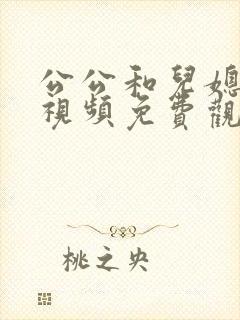 公公和兒媳
視頻免費觀
桃之央